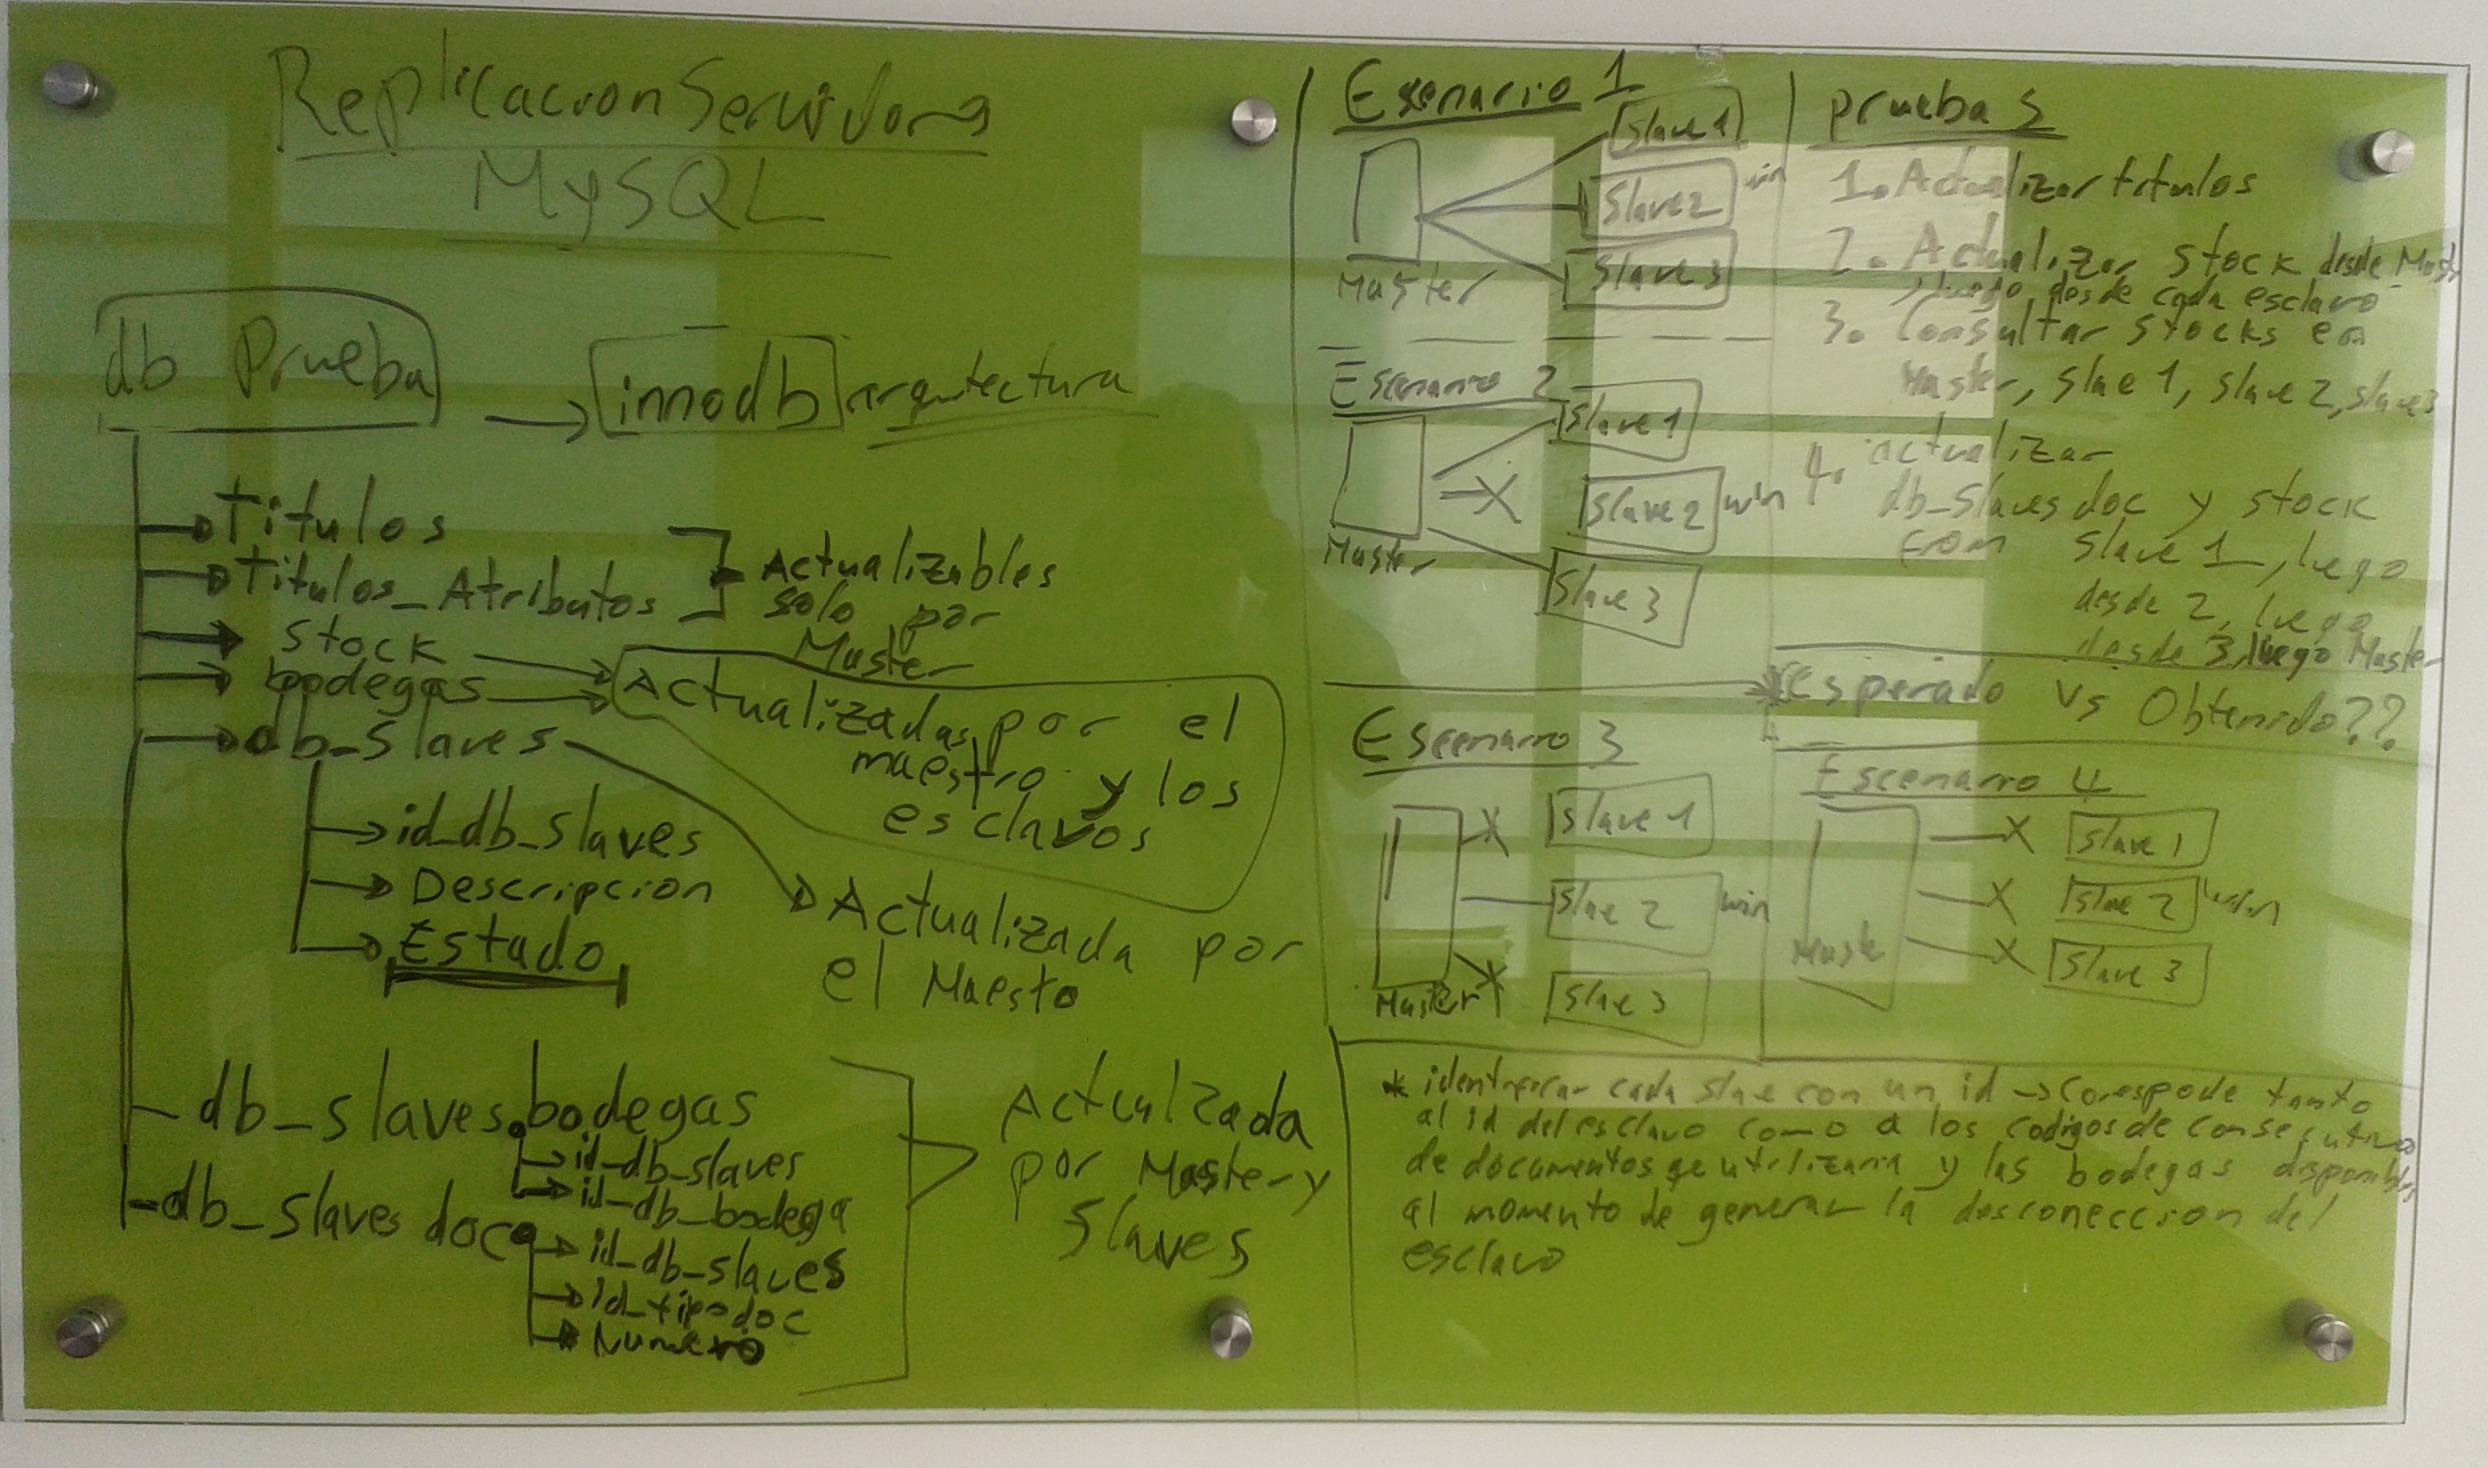 Replicacion Servidora
MySQL
db Prueba
innodb
arquitectura
Titulos
Titulos_Atributos
Actualizables
solo por
Master
stock
bodegas
Actualizadas por el
maestro y los
esclavos
db_slaves
id_db_slaves
Descripcion
Estado
Actualizada por
el Maesto
db_slaves.bodegas
id_db_slaves
id_db_bodega
db_slaves doc
id_db_slaves
id_tipodoc
Numero
Actulzada
por Master y
Slaves
Esenario 1
Slave 1
Slave 2 win
Slave 3
Master
Escenario 2
Slave 1
X
Slave 2 win
Slave 3
Master
Escenario 3
X Slave 1
Slave 2 win
X Slave 3
Master
pruebas
1. Actualizar titulos
2. Actualizar stock desde Mast
, luego desde cada esclavo
3. Consultar stocks en
Master, slae 1, slave 2, slave 3
4. actualizar
db_slaves doc y stock
from slave 1, luego
desde 2, luego
desde 3, luego Master
Esperado vs Obtenido??
Escenario 4
X Slave 1
X Slave 2 win
X Slave 3
Maste
* identificar cada slae con un id -> Correspode tanto
al id del esclavo como a los codigos de consecutivo
de documentos qe utilizaria y las bodegas disponibles
al momento de generar la desconeccion del
esclavo